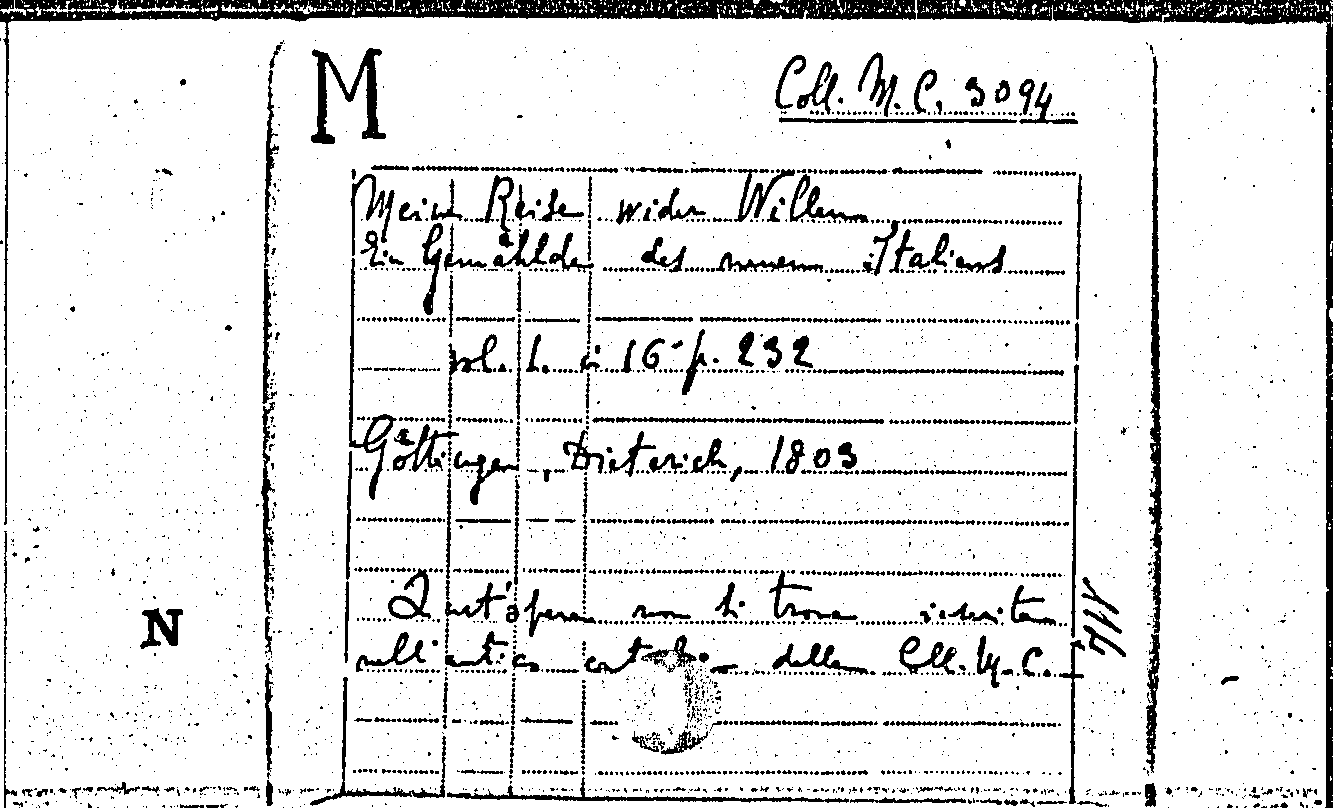 M
Coll. M. C. 3094
Meine Reise wider Willen
Ein Gemählde des neuen Italiens
vol. 1. in 16° p. 232
Göttingen, Dieterich, 1803
Quest'opera non si trova inserita
N
nell'antico catalogo della Coll. M. C.